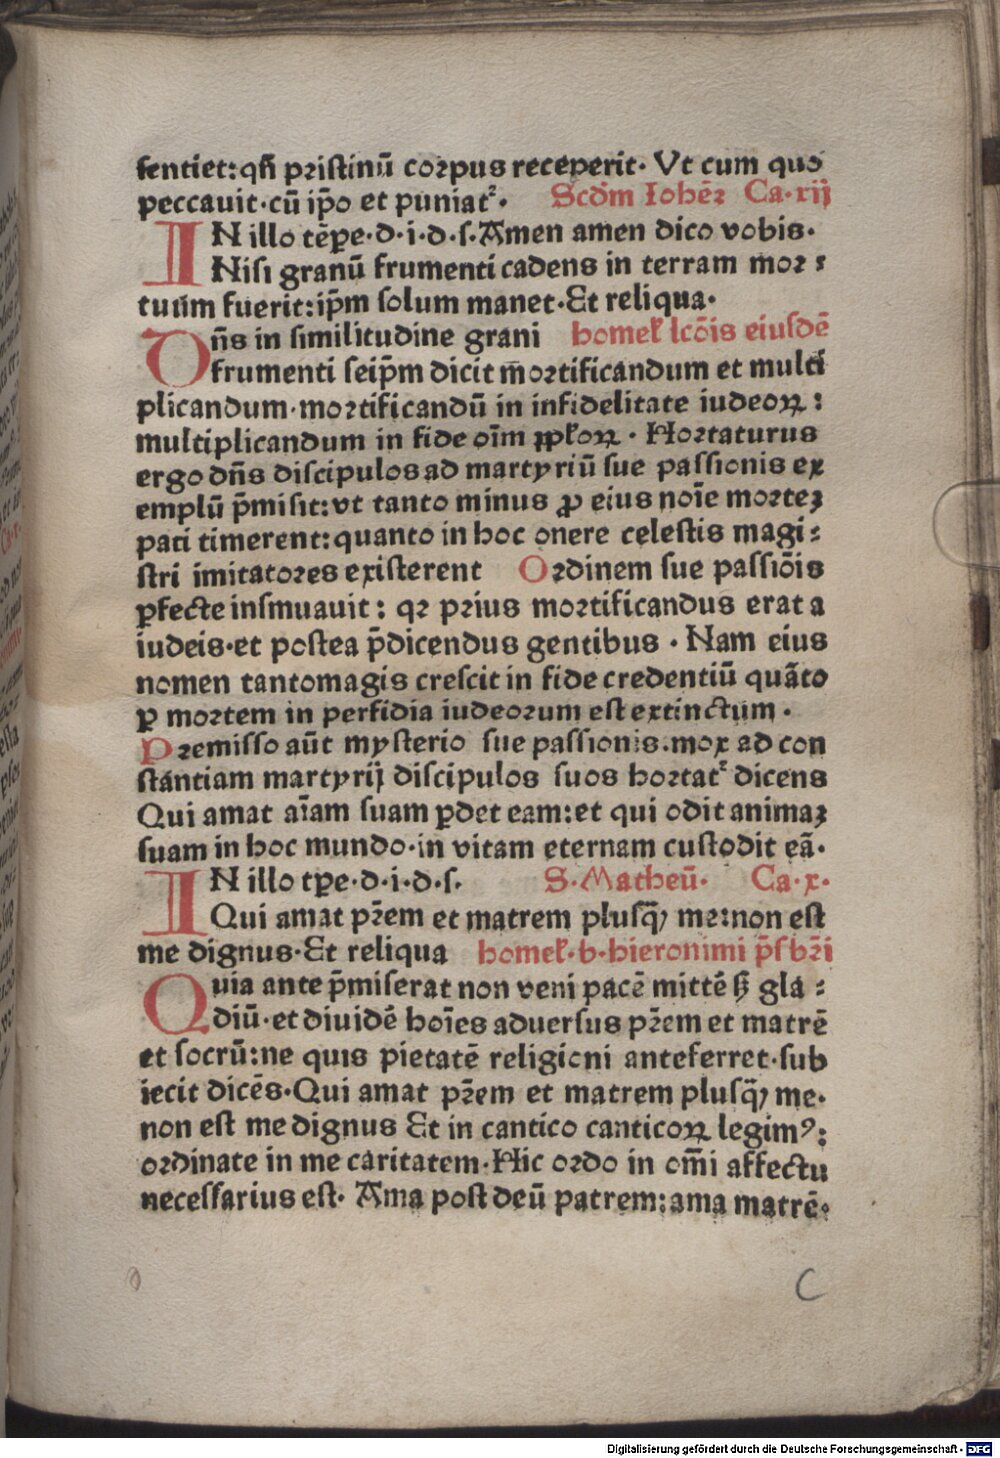 sentiet:qñ pristinū corpus receperit· Vt cum quo
peccavit·cū ip̄o et puniat᷑· Scd̄m Iohēꝛ Ca·xij
IN illo tēꝑe·d·i·d·s·Amen amen dico vobis·
Nisi granū frumenti cadens in terram mor⸗
tuum fuerit:ip̄m solum manet·Et reliqua·
Dn̄s in similitudine grani homeƚ lcōis eiusdē
frumenti seip̄m dicit m̄ortificandum et multi
plicandum·mortificandū in infidelitate iudeoꝝ:
multiplicandum in fide oīm ppƚoꝝ· Hortaturus
ergo dn̄s discipulos ad martyriū sue passionis ex
emplū p̄misit:vt tanto minus ꝓ eius noīe morteꝫ
pati timerent:quanto in hoc onere celestis magi⸗
stri imitatores existerent Ordinem sue passiōis
ꝑfecte insinuauit: qꝛ prius mortificandus erat a
iudeis·et postea p̄dicendus gentibus· Nam eius
nomen tantomagis crescit in fide credentiū quāto
ꝑ mortem in perfidia iudeorum est extinctum·
Premisso aūt mysterio sue passionis·mox ad con
stantiam martyrij discipulos suos hortat᷑ dicens
Qui amat aīam suam ꝑdet eam:et qui odit animaꝫ
suam in hoc mundo·in vitam eternam custodit eā·
IN illo tꝑe·d·i·d·s· S·Matheū· Ca·x·
Qui amat pr̄em et matrem plusq̄ꝫ me:non est
me dignus·Et reliqua homeƚ·b·hieronimi p̄sbr̄i
Quia ante p̄miserat non veni pacē mittē sꝫ gla⸗
diū·et diuidē hoīes aduersus pr̄em et matrē
et socrū:ne quis pietatē religioni anteferret·sub
iecit dicēs·Qui amat pr̄em et matrem plusq̄ꝫ me·
non est me dignus Et in cantico canticoꝝ legimꝰ:
ordinate in me caritatem·Hic ordo in om̄i affectu
necessarius est· Ama post deū patrem:ama matrē·
C
Digitalisierung gefördert durch die Deutsche Forschungsgemeinschaft · DFG